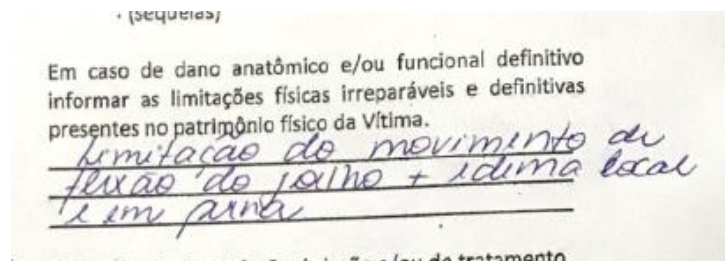 (sequelas)
Em caso de dano anatômico e/ou funcional definitivo
informar as limitações físicas irreparáveis e definitivas
presentes no patrimônio físico da Vítima.
Limitação do movimento de
flexão do joelho + edema local
e em perna
e/ou de tratamento